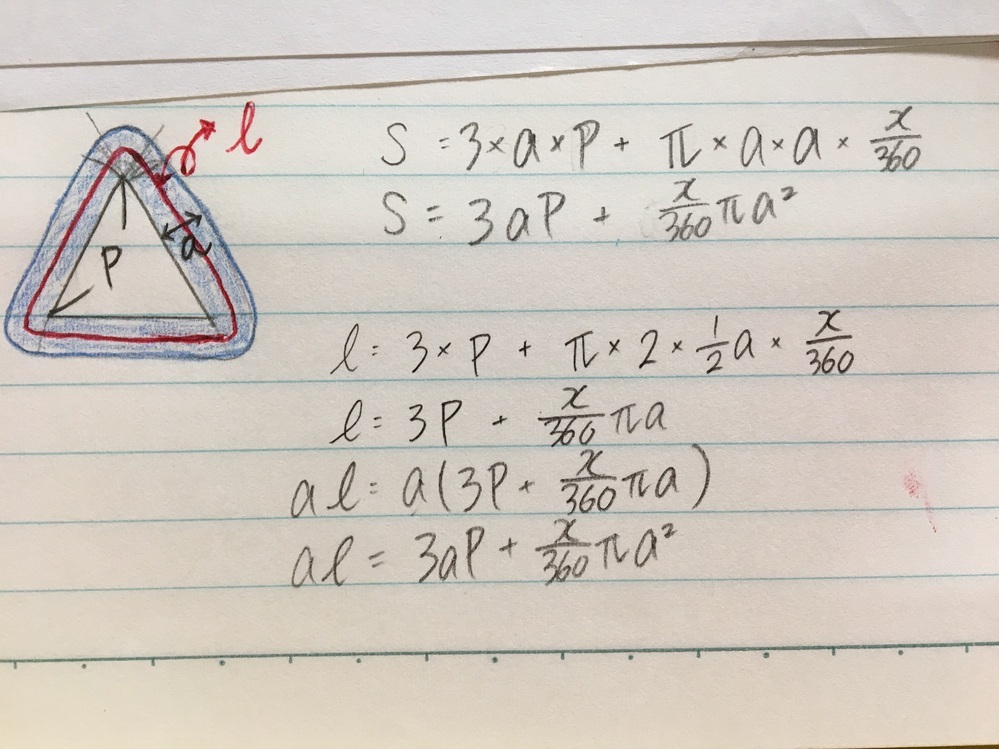 l
a
P
S = 3×a×P + π×a×a×x/360
S = 3aP + x/360 πa²
l = 3×P + π×2×1/2a×x/360
l = 3P + x/360 πa
al = a(3P + x/360 πa)
al = 3aP + x/360 πa²